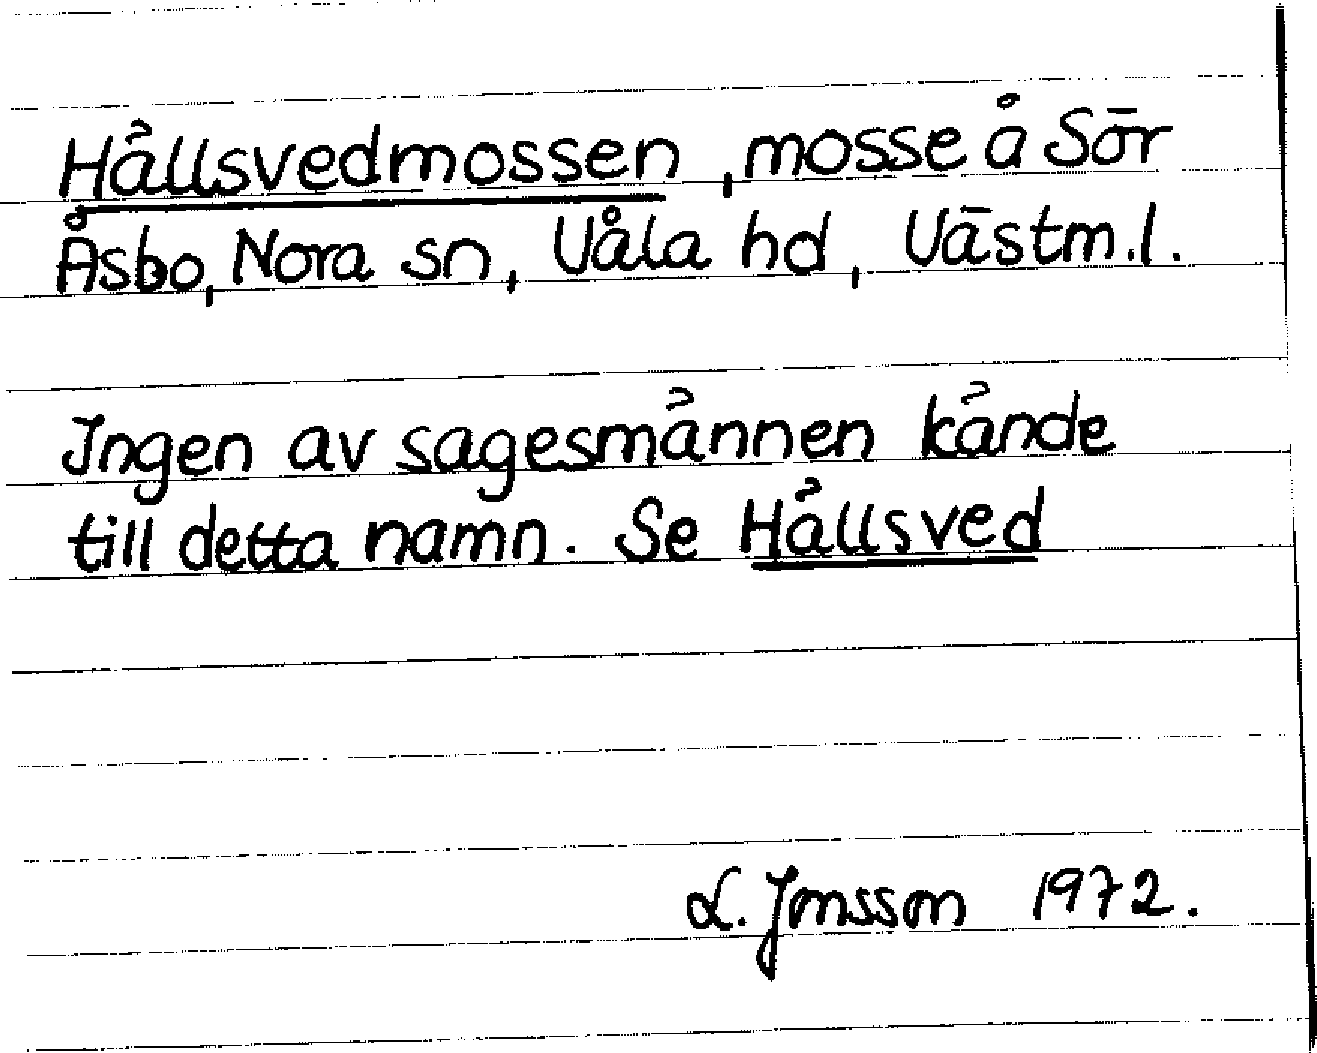 Hällsvedmossen, mosse å Sör
Åsbo, Nora sn, Våla hd, Västm.l.
Ingen av sagesmännen kände
till detta namn. Se Hällsved
L. Jonsson 1972.